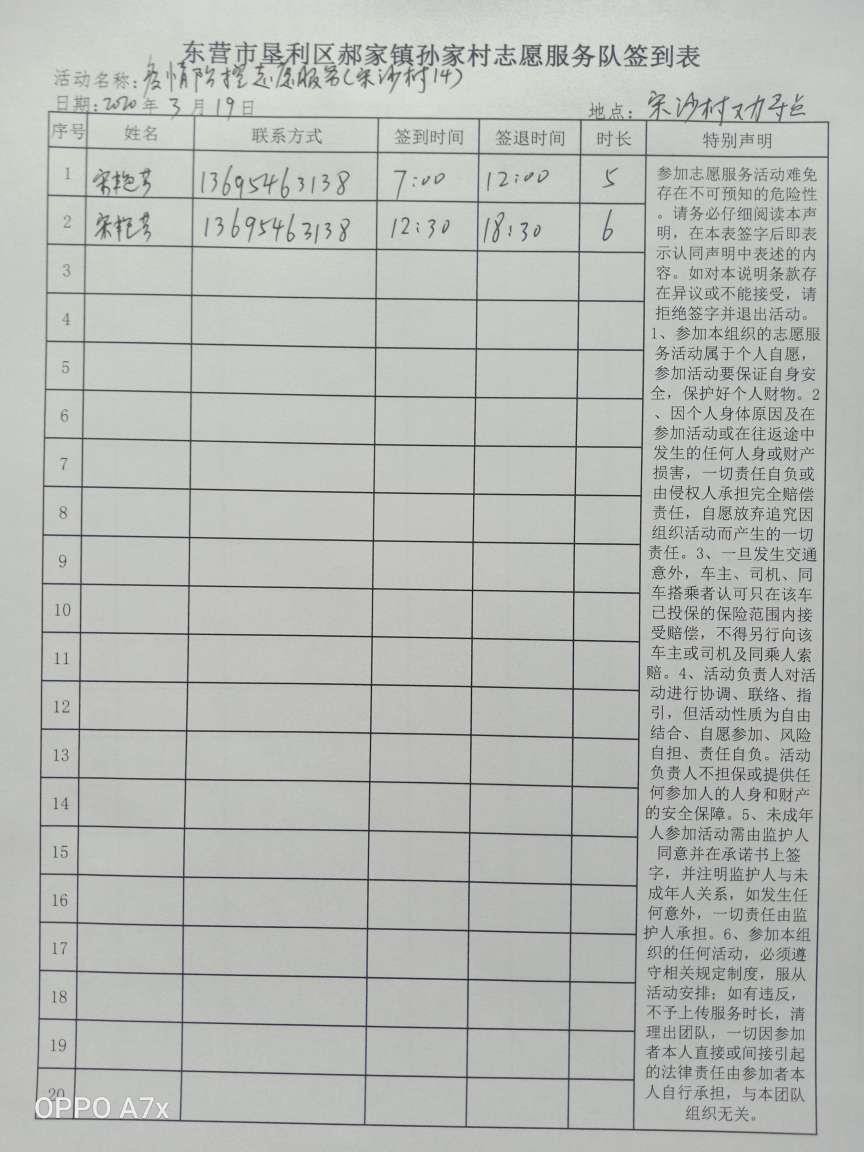 东营市垦利区郝家镇孙家村志愿服务队签到表
活动名称:疫情防控志愿服务(宋沙村14)
日期:2020年3月19日 地点:宋沙村劝导点
序号 姓名 联系方式 签到时间 签退时间 时长 特别声明
1 宋艳芳 13695463138 7:00 12:00 5
2 宋艳芳 13695463138 12:30 18:30 6
3
4
5
6
7
8
9
10
11
12
13
14
15
16
17
18
19
20
参加志愿服务活动难免
存在不可预知的危险性
。请务必仔细阅读本声
明,在本表签字后即表
示认同声明中表述的内
容。如对本说明条款存
在异议或不能接受,请
拒绝签字并退出活动。
1、参加本组织的志愿服
务活动属于个人自愿,
参加活动要保证自身安
全,保护好个人财物。2
、因个人身体原因及在
参加活动或在往返途中
发生的任何人身或财产
损害,一切责任自负或
由侵权人承担完全赔偿
责任,自愿放弃追究因
组织活动而产生的一切
责任。3、一旦发生交通
意外,车主、司机、同
车搭乘者认可只在该车
已投保的保险范围内接
受赔偿,不得另行向该
车主或司机及同乘人索
赔。4、活动负责人对活
动进行协调、联络、指
引,但活动性质为自由
结合、自愿参加、风险
自担、责任自负。活动
负责人不担保或提供任
何参加人的人身和财产
的安全保障。5、未成年
人参加活动需由监护人
同意并在承诺书上签
字,并注明监护人与未
成年人关系,如发生任
何意外,一切责任由监
护人承担。6、参加本组
织的任何活动,必须遵
守相关规定制度,服从
活动安排;如有违反,
不予上传服务时长,清
理出团队,一切因参加
者本人直接或间接引起
的法律责任由参加者本
人自行承担,与本团队
组织无关。
OPPO A7x